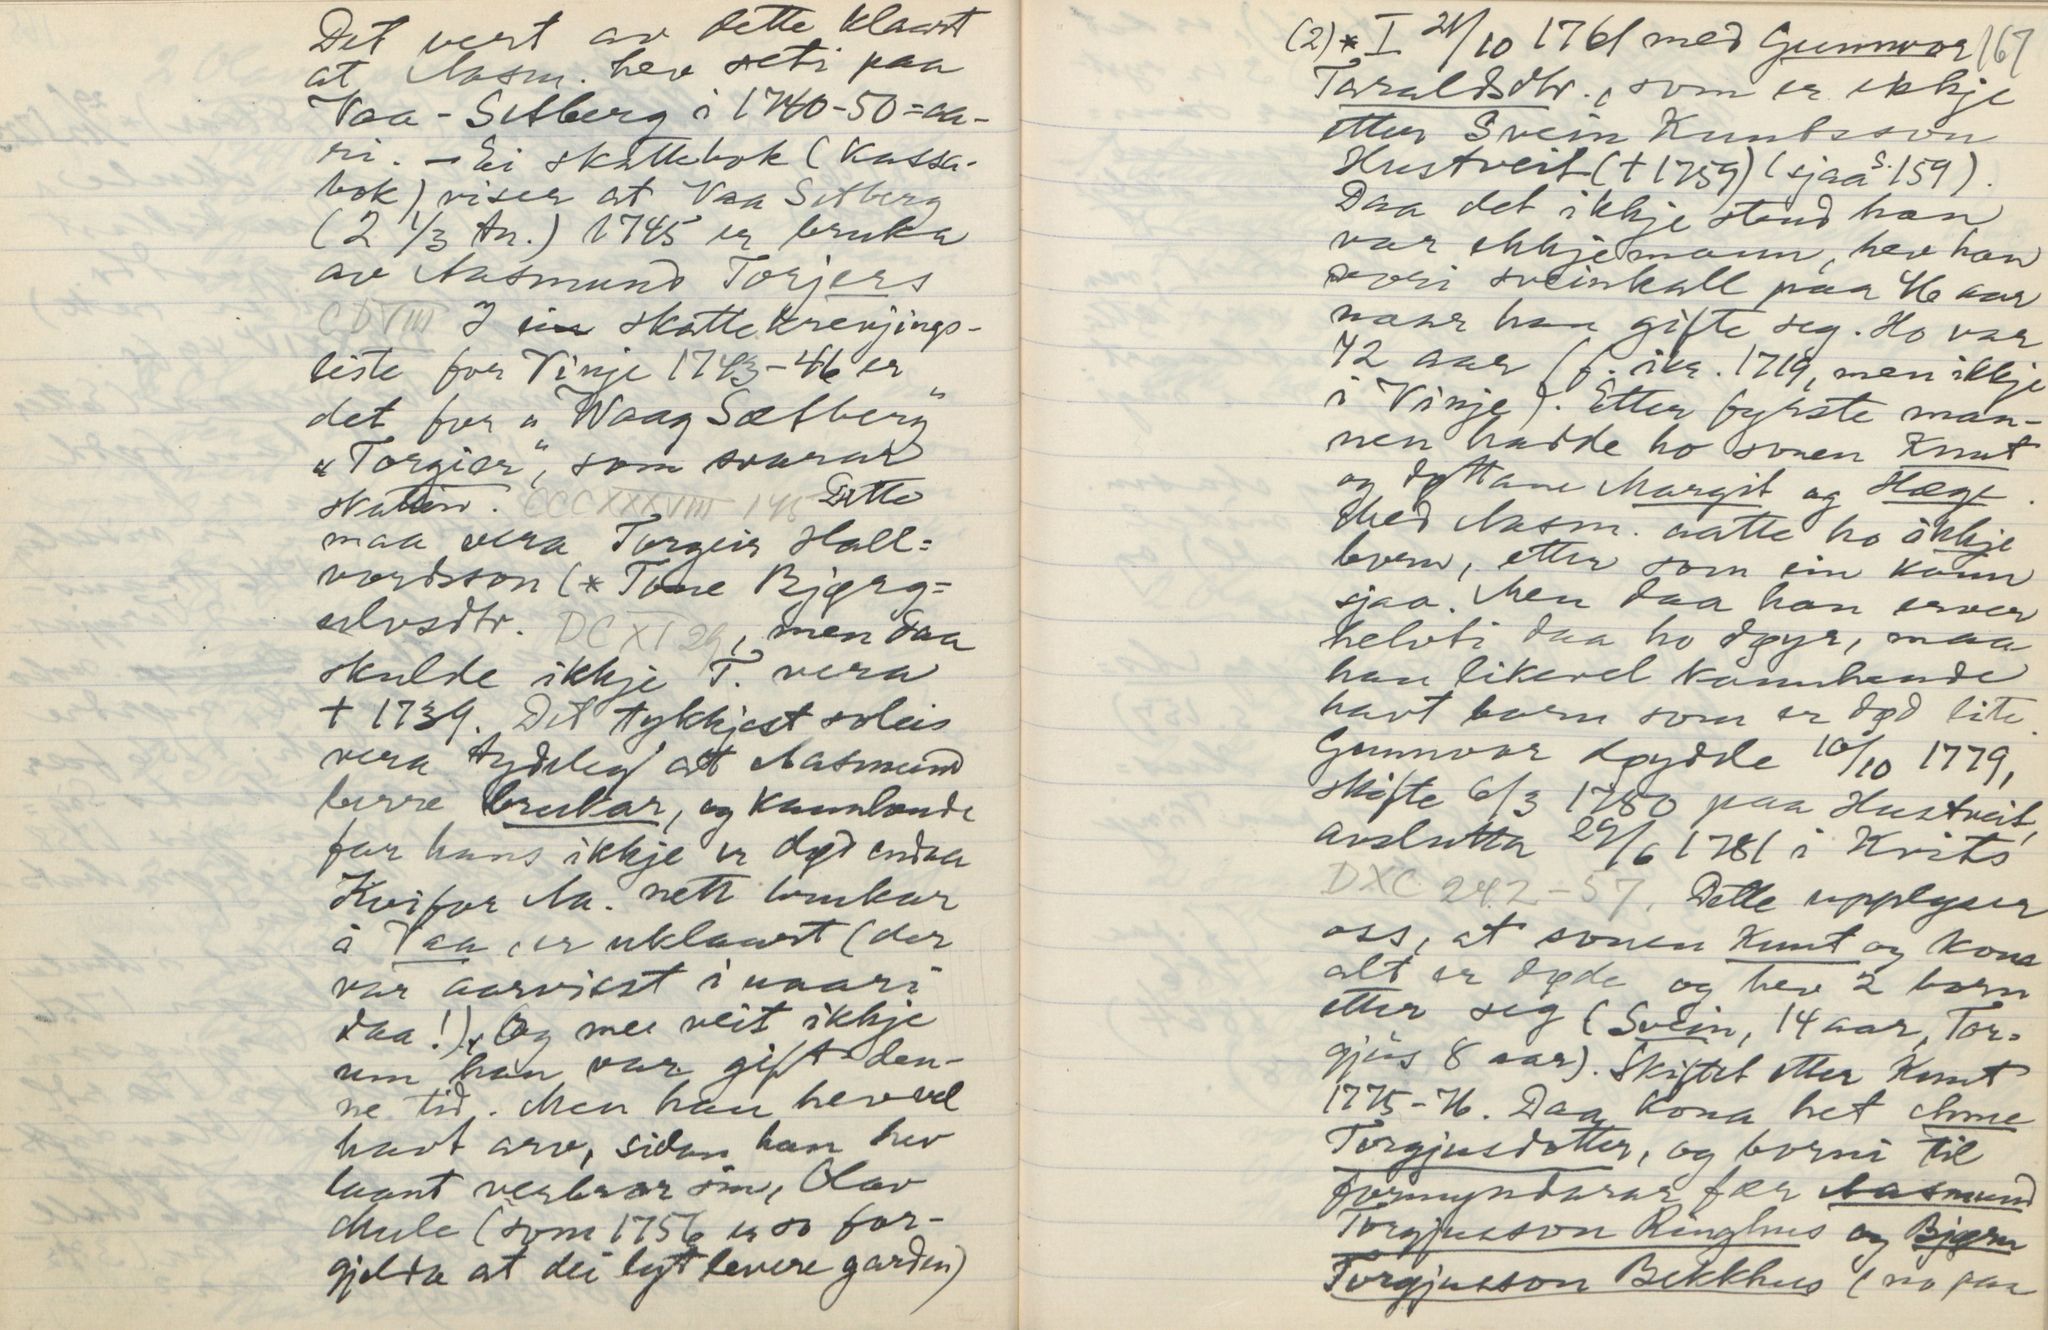 Det vert av dette klaart
at Aasm. hev seti paa
Vaa-Setberg i 1740-50=aa-
ri. — Ei skattebok (Kassa-
bok) viser at Vaa Setberg
(2 1/3 tn.) 1745 er bruka
av Aasmund Torjers
CDVIII I ein skattekrevjings-
liste for Vinje 1743-46 er
det for "Waag Sætberg"
"Torgier", som svarar
skatten. CCCXXXVIII 145 Dette
maa vera Torgeir Hall=
vordsson (* Tone Bjørg=
ulvsdtr. DCXI 29, men daa
skulde ikkje T. vera
† 1739. Det tykkjest soleis
vera tydeleg at Aasmund
berre brukar, og kannhende
far hans ikkje er død endaa
Kvifor Aa. nett brukar
i Vaa, er uklaart (der
var aarvisst i uaari
daa!), og me veit ikkje
um han var gift den-
ne tid. Men han hev vel
havt arv, sidan han hev
laant verbror sin, Olav
Mule (som 1756 er so for-
gjelda at dei lyt levere garden)
(2) * I 21/10 1761 med Gunnvor 167
Taraldsdtr., som er ekkje
etter Svein Knutsson
Hustveit († 1759) (sjaa s. 159).
Daa det ikkje stend han
var ekkjemann, hev han
vori sveinkall paa 46 aar
naar han gifte seg. Ho var
42 aar (f. ikr. 1719, men ikkje
i Vinje). Etter fyrste man-
nen hadde ho sonen Knut
og døttane Margit og Hæge.
Med Aasm. aatte ho ikkje
born, etter som ein kann
sjaa. Men daa han erver
helvti daa ho døyr, maa
han likevel kannhende
havt born som er død lite.
Gunnvor døydde 10/10 1779,
skifte 6/3 1780 paa Hustveit,
avslutta 29/6 1781 i Kvits
DXC 242-57. Dette upplyser
oss, at sonen Knut og kona
alt er døde og hev 2 born
etter seg (Svein, 14 aar, Tor-
gjus 8 aar). Skiftet etter Knut
1775-76. Daa kona het Anne
Torgjusdotter, og borni til
formyndarar fær Aasmund
Torgjusson Ringhus og Bjørn
Torgjusson Bekkhus (no paa